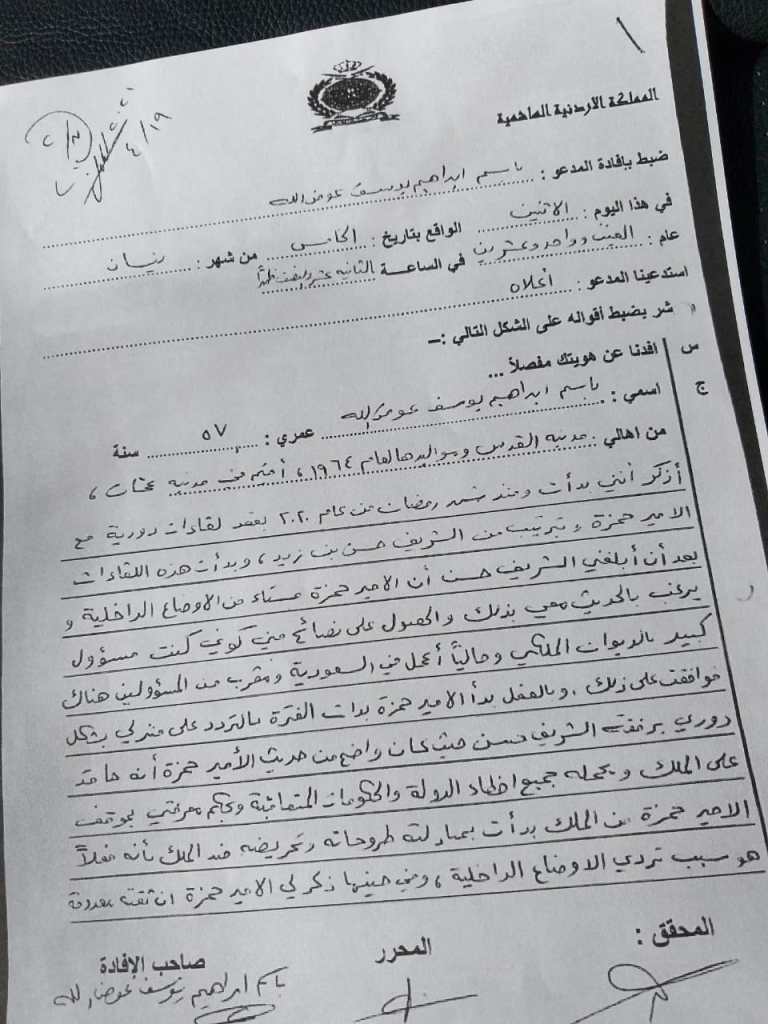 ١
المملكة الاردنية الهاشمية
٢٠٢١
٤/١٩
ضبط بإفادة المدعو : باسم ابراهيم يوسف عوض الله
في هذا اليوم : الاثنين الواقع بتاريخ : الخامس من شهر : نيسان
عام : الفين وواحد وعشرين في الساعة الثانيه عشر والنصف ظهراً
استدعينا المدعو : أعلاه
شر بضبط أقواله على الشكل التالي :–
س افدنا عن هويتك مفصلاً ...
ج اسمي : باسم ابراهيم يوسف عوض الله عمري : ٥٧ سنة
من اهالي : مدينه القدس ومواليدها لعام ١٩٦٤ ، أقيم في مدينه عمان ،
أذكر أنني بدأت ومنذ شهر رمضان من عام ٢٠٢٠ بعقد لقاءات دورية مع
الامير حمزة وبترتيب من الشريف حسن بن زيد ، وبدأت هذه اللقاءات
بعد أن أبلغني الشريف حسن أن الامير حمزة مستاء من الاوضاع الداخلية و
يرغب بالحديث معي بذلك والحصول على نصائح مني كوني كنت مسؤول
كبير بالديوان الملكي وحالياً أعمل في السعودية ومقرب من المسؤولين هناك
فوافقت على ذلك ، وبالفعل بدأ الامير حمزة بذات الفترة بالتردد على منزلي بشكل
دوري برفقة الشريف حسن حيث كان واضح من حديث الأمير حمزة أنه حاقد
على الملك ويحمله جميع اخطاء الدولة والحكومات المتعاقبة وبحكم معرفتي بموقف
الامير حمزة من الملك بدأت بمبادلته طروحاته وتحريضه ضد الملك بأنه فعلاً
هو سبب تردي الاوضاع الداخلية ، وفي حينها ذكر لي الامير حمزة ان ثقته معدومة
المحقق : المحرر صاحب الإفادة
باسم ابراهيم يوسف عوض الله